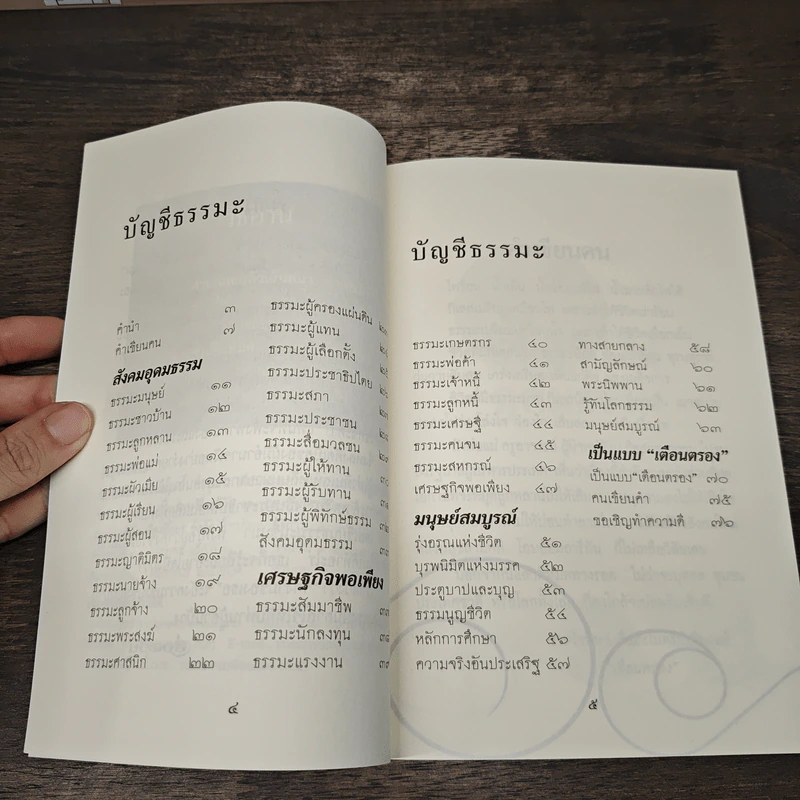 บัญชีธรรมะ
คำนำ ๓
คำเขียนคน ๗
สังคมอุดมธรรม
ธรรมะมนุษย์ ๑๑
ธรรมะชาวบ้าน ๑๒
ธรรมะลูกหลาน ๑๓
ธรรมะพ่อแม่ ๑๔
ธรรมะผัวเมีย ๑๕
ธรรมะผู้เรียน ๑๖
ธรรมะผู้สอน ๑๗
ธรรมะญาติมิตร ๑๘
ธรรมะนายจ้าง ๑๙
ธรรมะลูกจ้าง ๒๐
ธรรมะพระสงฆ์ ๒๑
ธรรมะศาสนิก ๒๒
ธรรมะผู้ครองแผ่นดิน
ธรรมะผู้แทน
ธรรมะผู้เลือกตั้ง
ธรรมะประชาธิปไตย
ธรรมะสภา
ธรรมะประชาชน
ธรรมะสื่อมวลชน
ธรรมะผู้ให้ทาน
ธรรมะผู้รับทาน
ธรรมะผู้พิทักษ์ธรรม
สังคมอุดมธรรม
เศรษฐกิจพอเพียง
ธรรมะสัมมาชีพ
ธรรมะนักลงทุน
ธรรมะแรงงาน
๔
บัญชีธรรมะ
ธรรมะเกษตรกร ๔๐
ธรรมะพ่อค้า ๔๑
ธรรมะเจ้าหนี้ ๔๒
ธรรมะลูกหนี้ ๔๓
ธรรมะเศรษฐี ๔๔
ธรรมะคนจน ๔๕
ธรรมะสหกรณ์ ๔๖
เศรษฐกิจพอเพียง ๔๗
มนุษย์สมบูรณ์
รุ่งอรุณแห่งชีวิต ๕๑
บุรพนิมิตแห่งมรรค ๕๒
ประตูบาปและบุญ ๕๓
ธรรมนูญชีวิต ๕๔
หลักการศึกษา ๕๖
ความจริงอันประเสริฐ ๕๗
ทางสายกลาง ๕๘
สามัญลักษณ์ ๖๐
พระนิพพาน ๖๑
รู้ทันโลกธรรม ๖๒
มนุษย์สมบูรณ์ ๖๓
เป็นแบบ "เตือนตรอง"
เป็นแบบ"เตือนตรอง" ๗๐
คนเขียนคำ ๗๕
ขอเชิญทำความดี ๗๖
๕